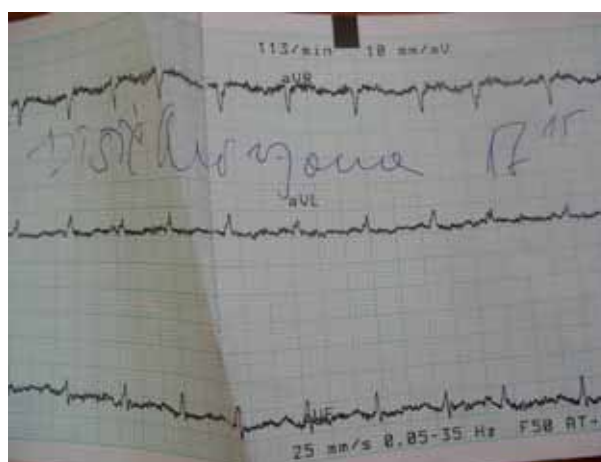 113/min 10 mm/mV
aVR
17¹⁵
aVL
aVF
25 mm/s 0.05-35 Hz F50 AT+